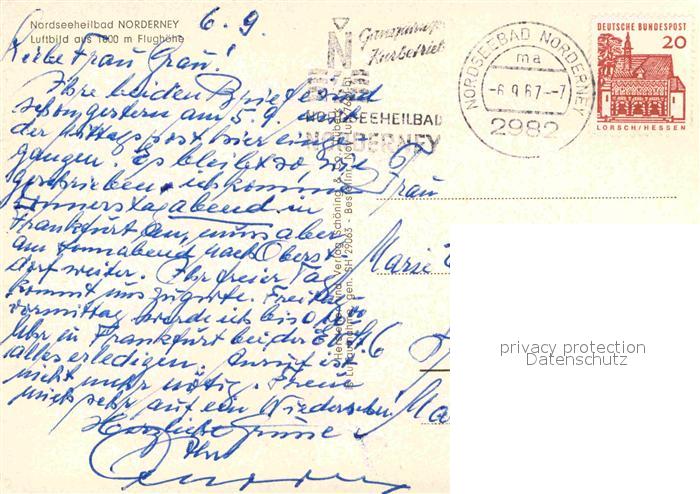 Nordseeheilbad NORDERNEY
Luftbild aus 1800 m Flughöhe
6.9.
Liebe Frau Grau!
Ihre beiden Briefe sind
schon gestern am 5.9. mit
der Mittagspost hier
gangen. Es bleibt so wie
geschrieben, ich komme
Donnerstagabend in
Frankfurt an, muss aber
am Sonnabend nach
dorf weiter. Ihr freier Tag
kommt uns zugute. Freitag
vormittag werde ich bis
Uhr in Frankfurt bei der
alles erledigen. Anruf ist
nicht mehr nötig. Freue
mich sehr auf ein Wiedersehen
Herzliche Grüsse
Ihr
Ganzjähriger
Kurbetrieb
N
NORDSEEHEILBAD
NORDERNEY
NORDSEEBAD NORDERNEY
ma
-6.9.67.-7
2982
DEUTSCHE BUNDESPOST
20
LORSCH/HESSEN
Frau
Marie
Herstellung und Verlag Schöning &
Luftaufnahme gen. SH 29063 - Bestellnr. Nor Lu
privacy protection
Datenschutz